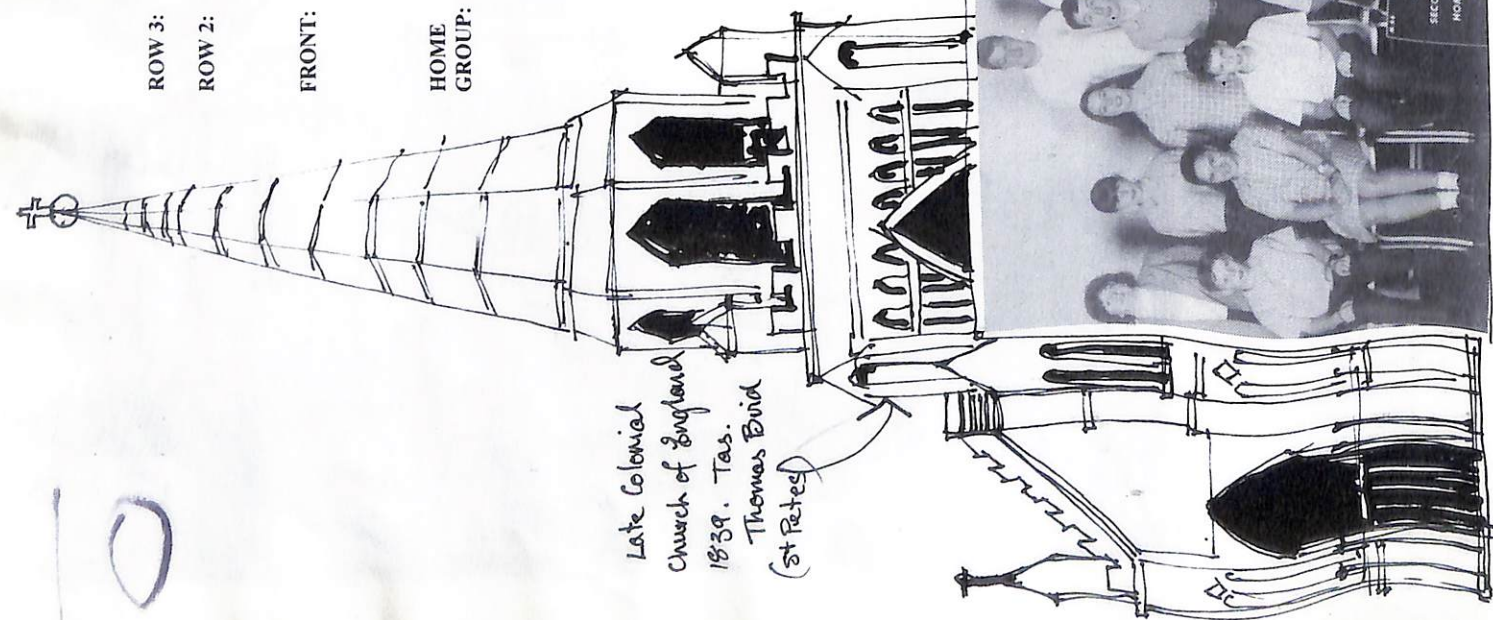 ROW 3:
ROW 2:
FRONT:
HOME
GROUP:
Late Colonial
Church of England
1839. Tas.
Thomas Bird
(St Petes)
SECO
HOM